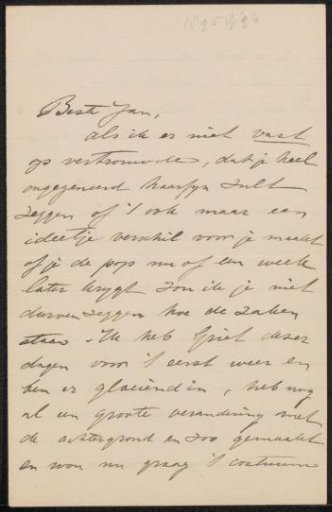 1895 of '96
Beste Jan,
als ik er niet vast
op vertrouwde, dat je heel
ongegeneerd haarfijn zult
zeggen of 't ook maar een
ideetje verschil voor je maakt
of je de pop nu of een week
later krygt zou ik je niet
durven zeggen hoe de zaken
staan. Ik heb Griet dezer
dagen voor 't eerst weer en
ben er gloeiend in, heb nog
al een groote verandering met
de achtergrond en zoo gemaakt
en wou nu graag 't costuum